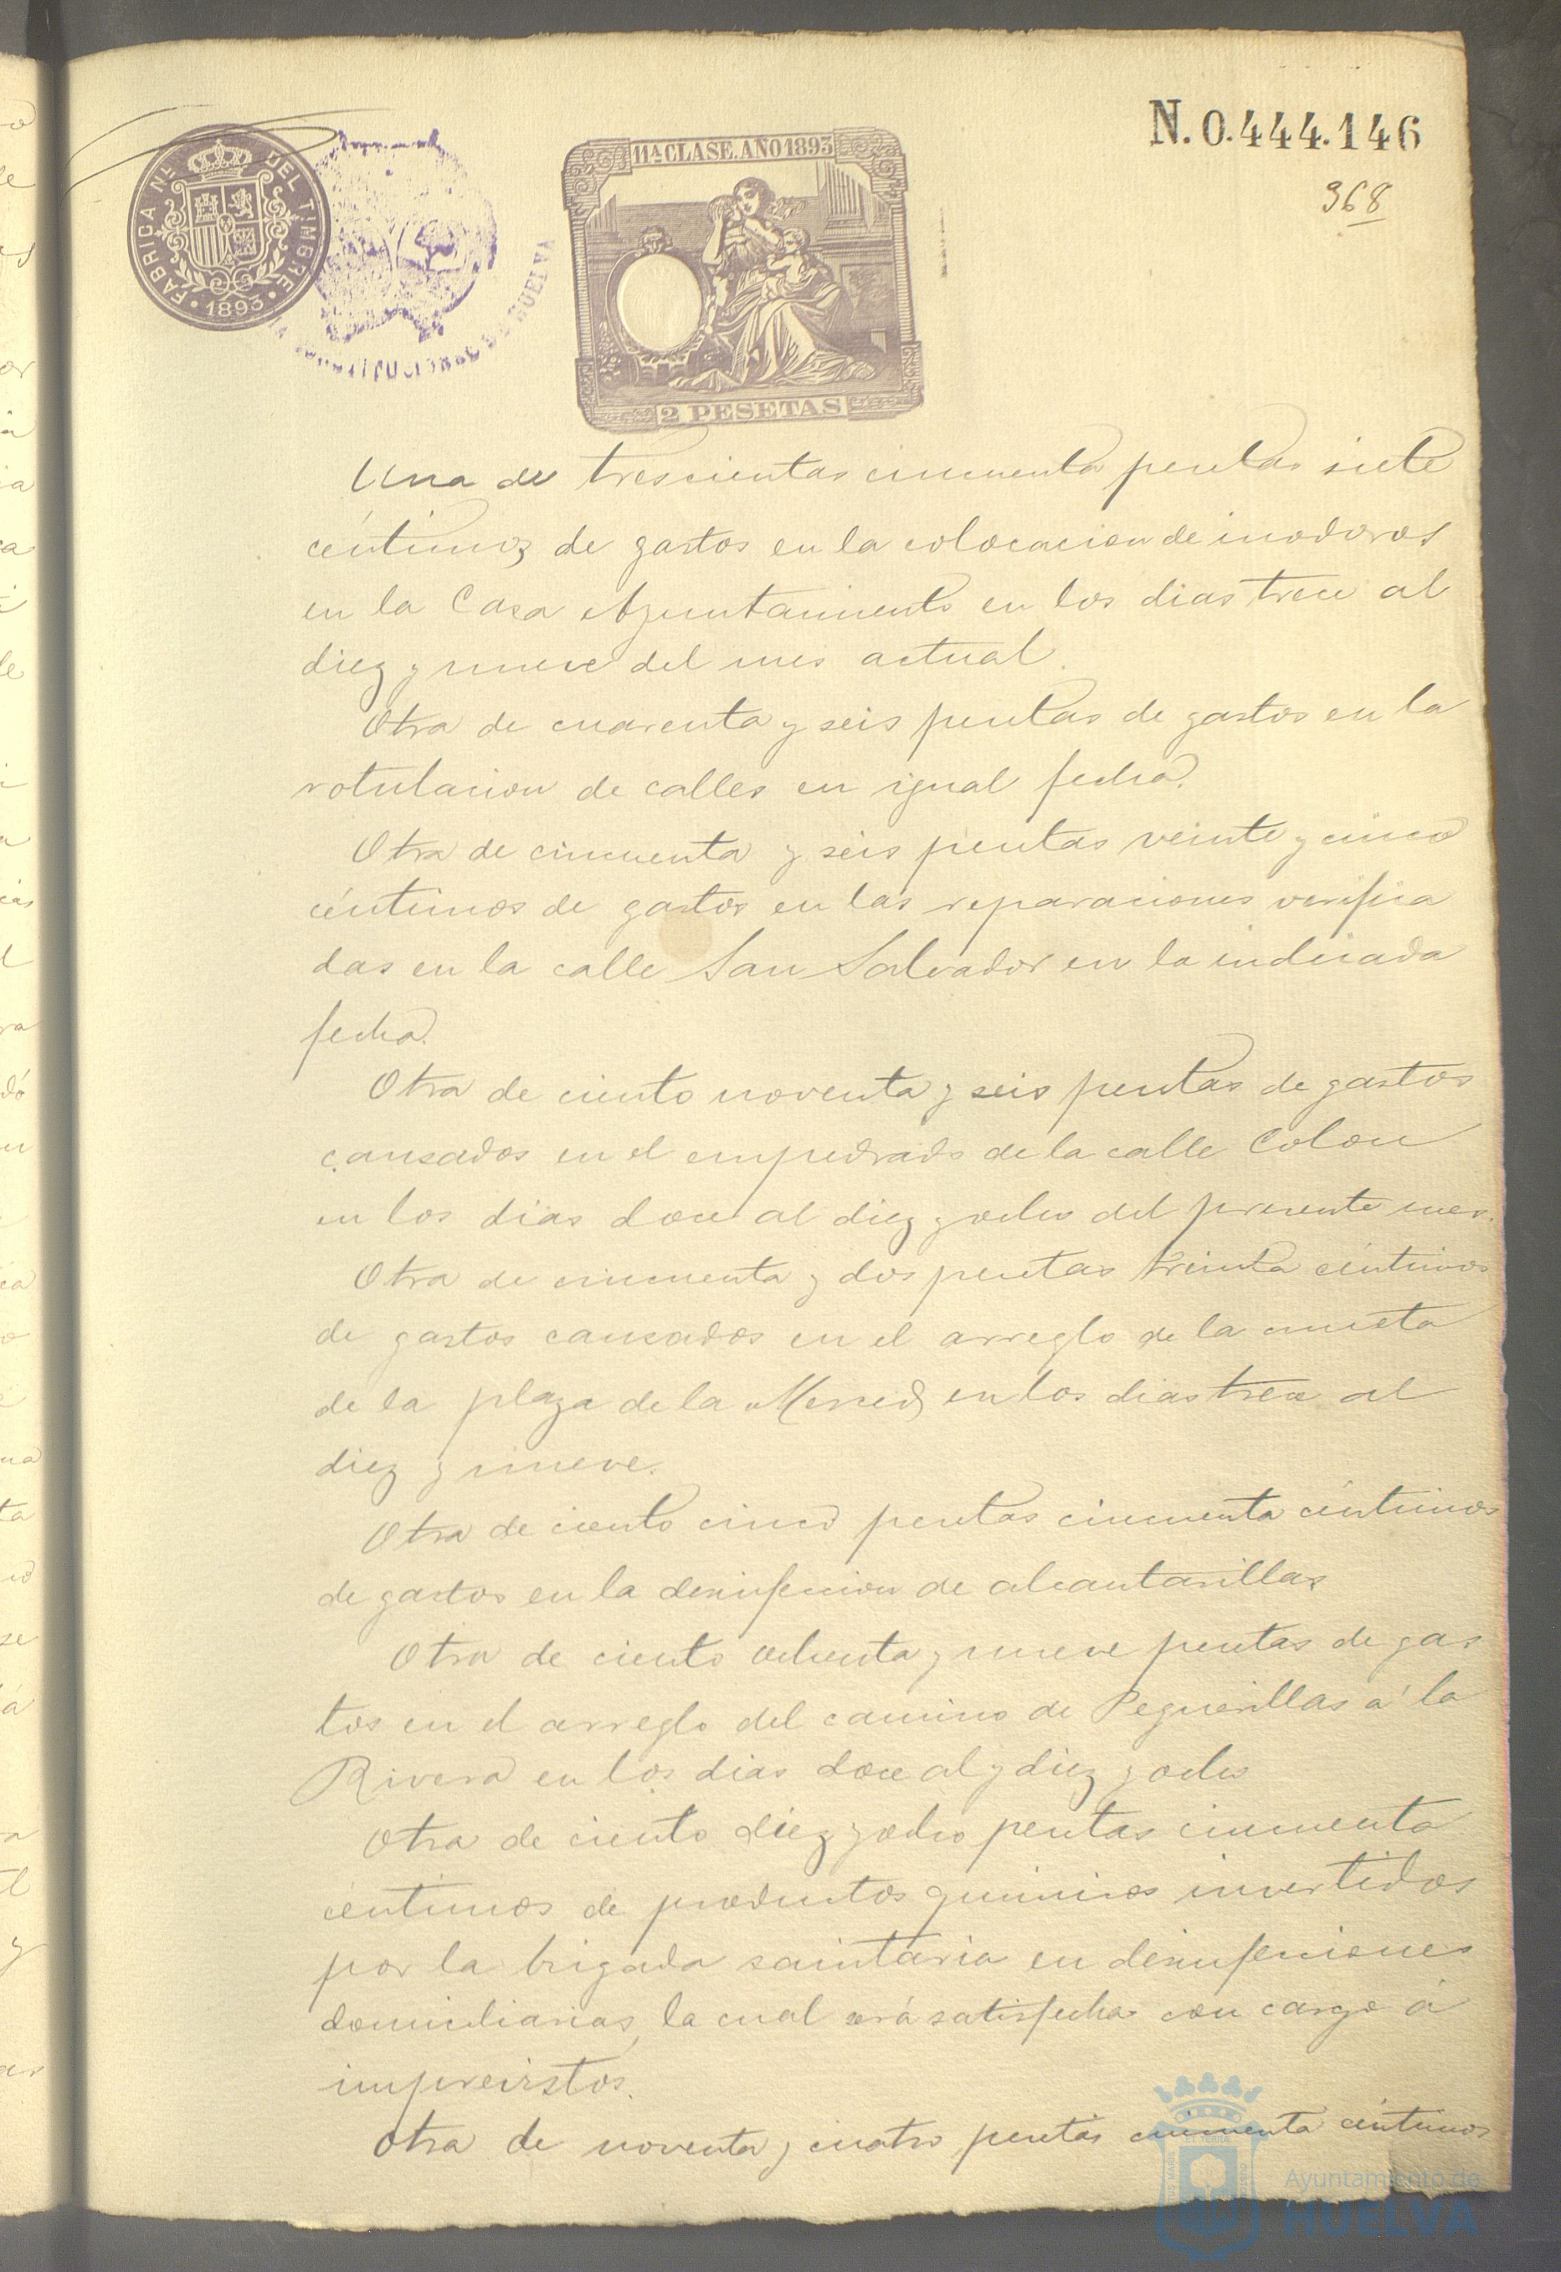 N. 0.444.146
368
FABRICA NL. DEL TIMBRE
1893
CONSTITUCIONAL DE HUELVA
11A CLASE. AÑO 1893
2 PESETAS
Una de trescientas cincuenta pesetas siete
céntimos de gastos en la colocacion de inodoros
en la Casa Ayuntamiento en los dias trece al
diez y nueve del mes actual.
Otra de cuarenta y seis pesetas de gastos en la
rotulacion de calles en igual fecha.
Otra de cincuenta y seis pesetas veinte y cinco
céntimos de gastos en las reparaciones verifica
das en la calle San Salvador en la indicada
fecha.
Otra de ciento noventa y seis pesetas de gastos
causados en el empedrado de la calle Colon
en los dias doce al diez y ocho del presente mes.
Otra de cincuenta y dos pesetas treinta céntimos
de gastos causados en el arreglo de la cuneta
de la plaza de la Merced en los dias trece al
diez y nueve.
Otra de ciento cinco pesetas cincuenta céntimos
de gastos en la desinfeccion de alcantarillas
Otra de ciento ochenta y nueve pesetas de gas
tos en el arreglo del camino de Peguerillas a la
Rivera en los dias doce al y diez y ocho
Otra de ciento diez y ocho pesetas cincuenta
céntimos de productos quimicos invertidos
por la brigada sanitaria en desinfecciones
domiciliarias, la cual será satisfecha con cargo á
imprevistos.
Otra de noventa y cuatro pesetas cincuenta céntimos
Ayuntamiento de
HUELVA